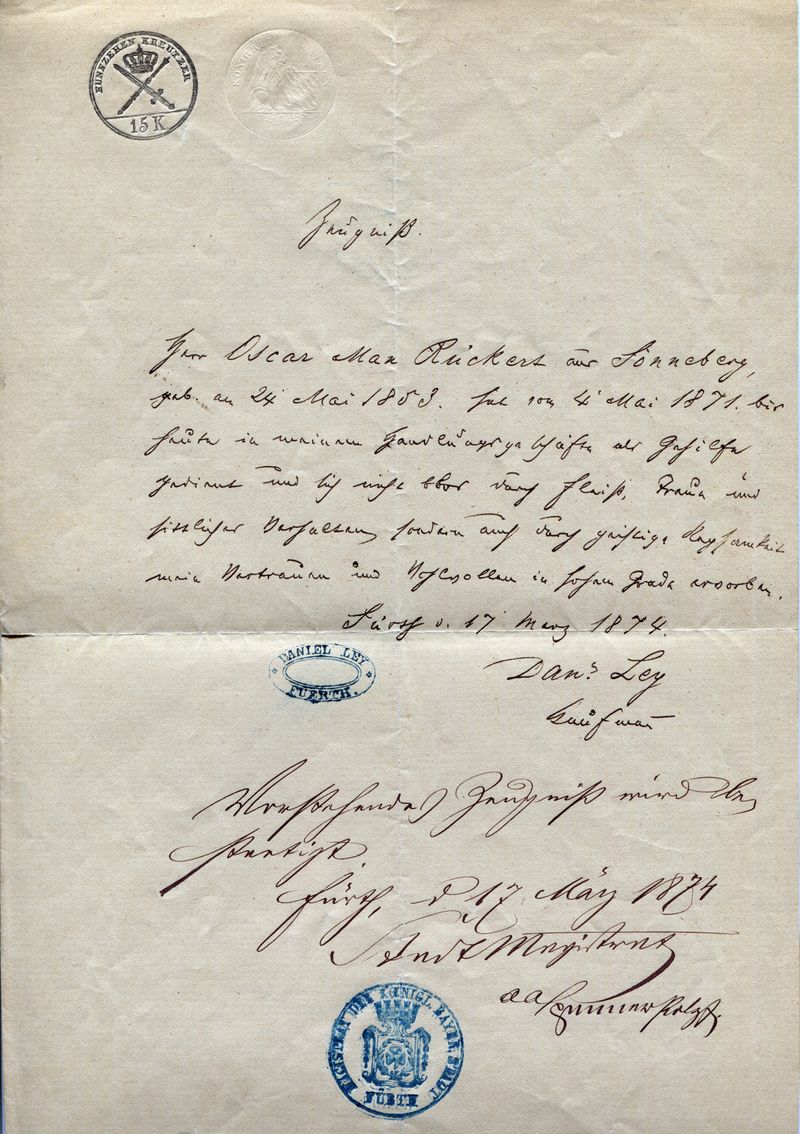 FÜNFZEHEN KREUTZER
15 K
Zeugniß.
Herr Oscar Max Rückert aus Sonneberg,
geb. am 24 Mai 1853. hat vom 4 Mai 1871. bis
heute in meinem Handlungsgeschäfte als Gehilfe
gedient und sich nicht blos durch Fleiß, Treue und
sittliches Verhalten, sondern auch durch geistige Regsamkeit
mein Vertrauen und Wohlwollen in hohem Grade erworben.
Fürth d. 17 Merz 1874.
DANIEL LEY
FUERTH.
Danl Ley
Kaufmann
Vorstehendes Zeugniß wird be
staetigt.
Fürth, d 17 März 1874
Stadt Magistrat
DER KÖNIGL. BAYER. STADT
FÜRTH